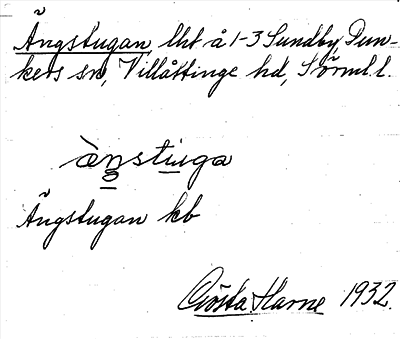 Ängstugan, lht å 1-3 Sundby, Dun-
kers sn, Villåttinge hd, Sörml. l.
ängstuga
Ängstugan kb
Gösta Harne 1932.